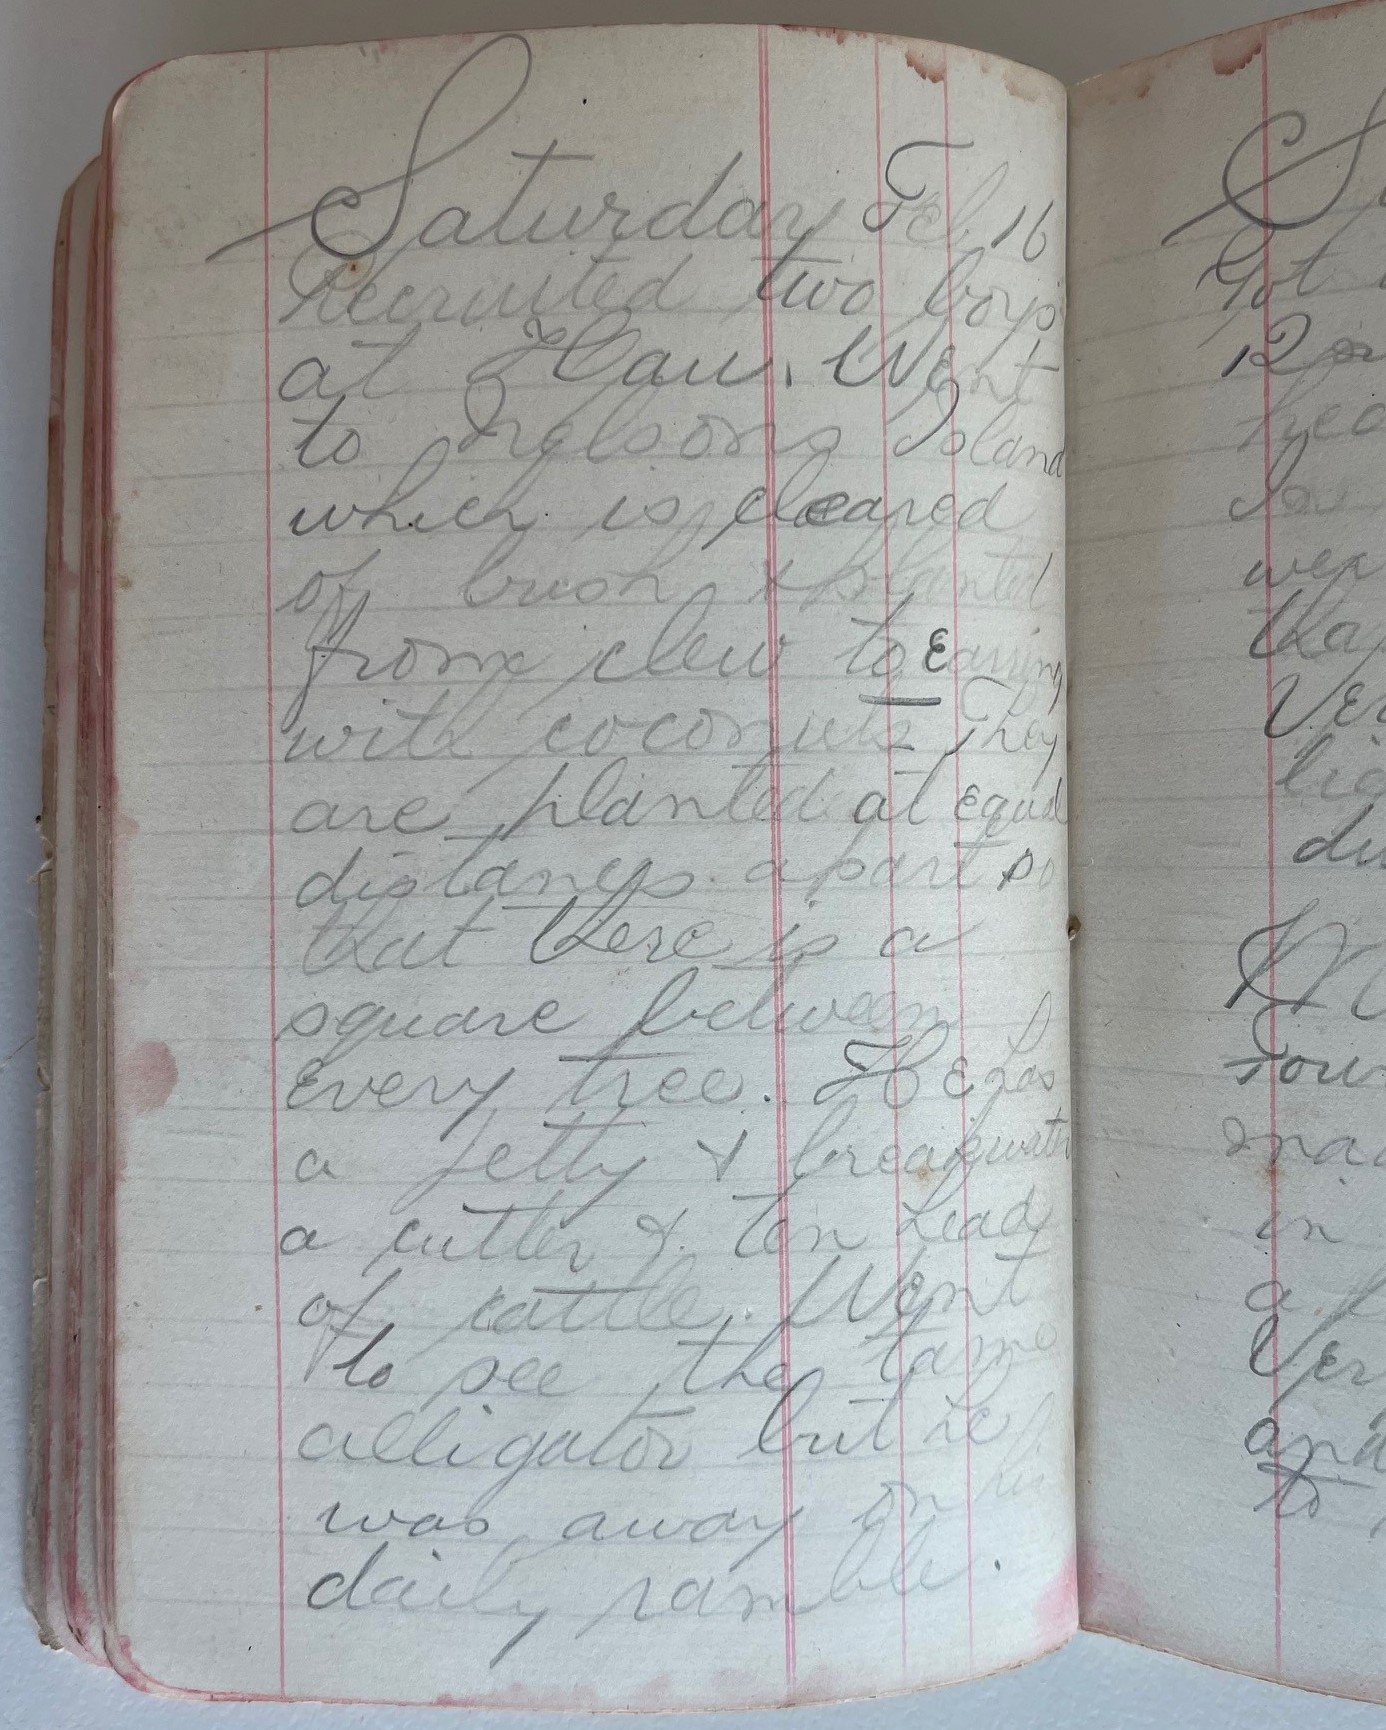 Saturday Feb 16
Recruited two boys
at Hau. Went
to Nelsons Island
which is cleared
of bush & planted
from clew to Earring
with coconuts They
are planted at Equal
distances apart so
that there is a
square between
Every tree. He has
a jetty & breakwater
a cutter & ten head
of cattle. Went
to see the tame
alligator but he
was away on his
daily ramble.
Got
12